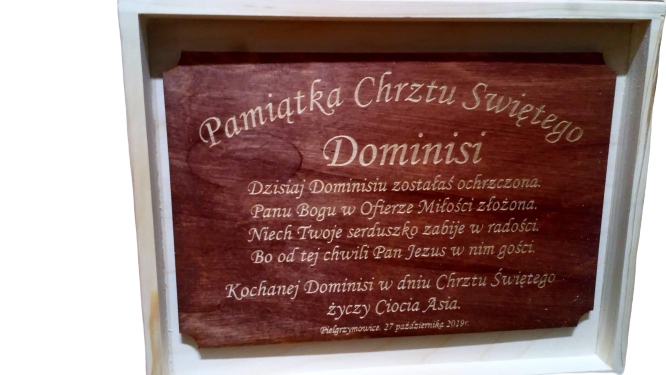 Pamiątka Chrztu Swiętego
Dominisi
Dzisiaj Dominisiu zostałaś ochrzczona.
Panu Bogu w Ofierze Miłości złożona.
Niech Twoje serduszko zabije w radości.
Bo od tej chwili Pan Jezus w nim gości.
Kochanej Dominisi w dniu Chrztu Świętego
życzy Ciocia Asia.
Pielgrzymowice, 27 października 2019r.